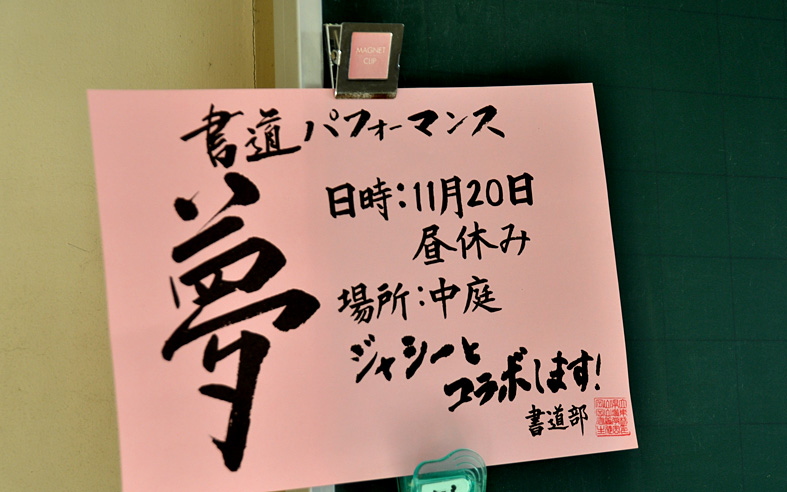 MAGNET
CLIP
書道パフォーマンス
夢
日時：11月20日
昼休み
場所：中庭
ジャシーと
コラボします！
書道部